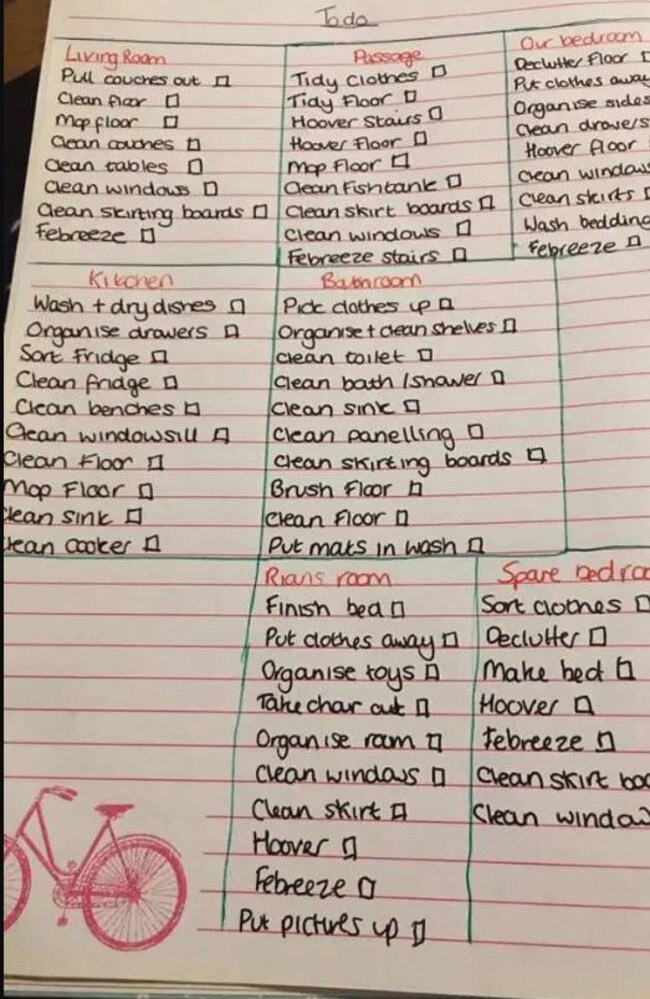 Todo
Living Room
Pull couches out
Clean floor
Mop floor
Clean couches
Clean tables
Clean windows
Clean skirting boards
Febreeze
Passage
Tidy Clothes
Tidy Floor
Hoover Stairs
Hoover Floor
Mop Floor
Clean Fishtank
Clean skirt boards
Clean windows
Febreeze stairs
Our bedroom
Declutter Floor
Put clothes away
Organise sides
Clean drawers
Hoover floor
Clean windows
Clean skirts
Wash bedding
Febreeze
Kitchen
Wash + dry dishes
Organise drawers
Sort Fridge
Clean fridge
Clean benches
Clean windowsill
Clean Floor
Mop Floor
lean sink
lean cooker
Bathroom
Pick clothes up
Organise + clean shelves
Clean toilet
Clean bath / shower
Clean sink
Clean panelling
Clean skirting boards
Brush Floor
Clean Floor
Put mats in wash
Rians room
Finish bed
Put clothes away
Organise toys
Take chair out
Organise room
Clean windows
Clean skirt
Hoover
Febreeze
Put pictures up
Spare bedroo
Sort clothes
Declutter
Make bed
Hoover
Febreeze
Clean skirt boa
Clean window